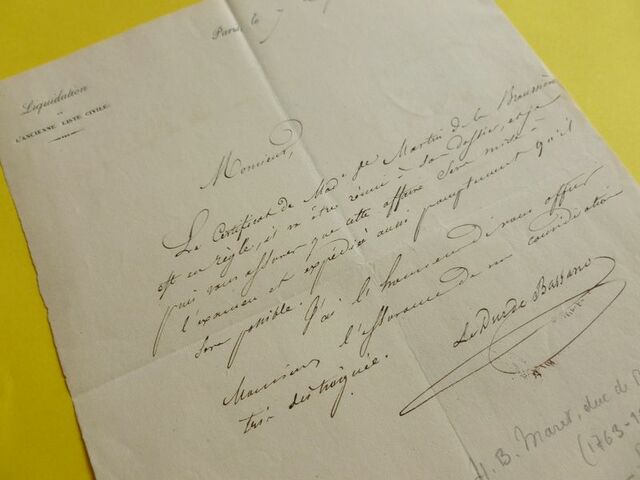 Paris, le 7
Liquidation
DE
L'ANCIENNE LISTE CIVILE.
Monsieur,
Le Certificat de Mad.e de Martin de la
est en règle, il va être réuni à son dossier, et je
puis vous assurer que cette affaire sera mise à
l'examen et expédiée aussi promptement qu'il
sera possible. J'ai l'honneur de vous offrir
Monsieur l'assurance de ma considération
très distinguée.
Le Duc de Bassano
H. B. Maret, duc de
(1763-1